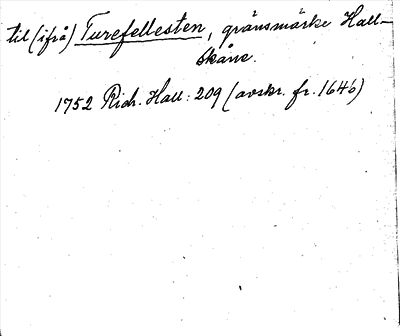 til (ifrå) Turefellesten, gränsmärke Hall-
Skåne.
1752 Rich. Hall: 209 (avskr. fr. 1646)